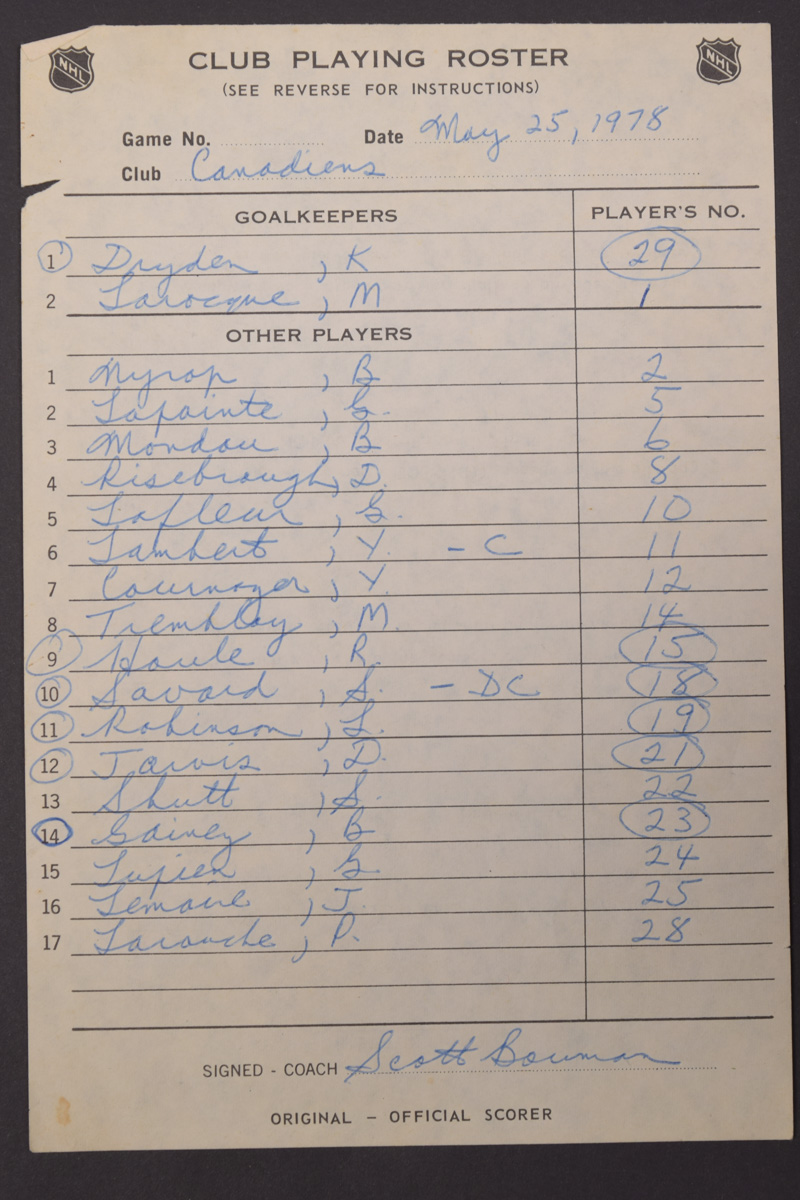 NHL NHL
CLUB PLAYING ROSTER
(SEE REVERSE FOR INSTRUCTIONS)
Game No. Date May 25, 1978
Club Canadiens
GOALKEEPERS PLAYER'S NO.
1 Dryden, K 29
2 Larocque, M 1
OTHER PLAYERS
1 Nyrop, B 2
2 Lapointe, G. 5
3 Mondou, B 6
4 Risebrough, D. 8
5 Lafleur, G. 10
6 Lambert, Y. - C 11
7 Cournoyer, Y. 12
8 Tremblay, M. 14
9 Houle, R. 15
10 Savard, S. - DC 18
11 Robinson, L. 19
12 Jarvis, D. 21
13 Shutt, S. 22
14 Gainey, B 23
15 Lupien, G. 24
16 Lemaire, J. 25
17 Larouche, P. 28
SIGNED - COACH Scott Bowman
ORIGINAL - OFFICIAL SCORER